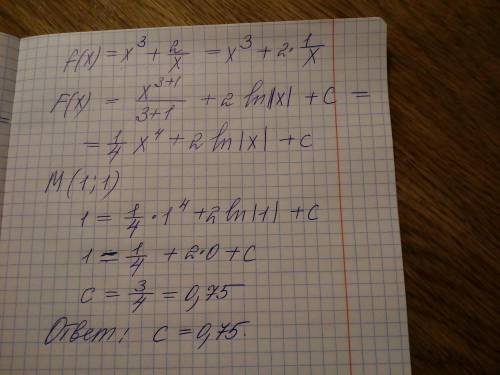 f(x) = x³ + 2/x = x³ + 2·1/x
F(x) = x³⁺¹/3+1 + 2 ln|x| + C =
= 1/4 x⁴ + 2 ln|x| + C
M(1;1)
1 = 1/4 · 1⁴ + 2 ln|1| + C
1 = 1/4 + 2·0 + C
C = 3/4 = 0,75
Ответ: C = 0,75.